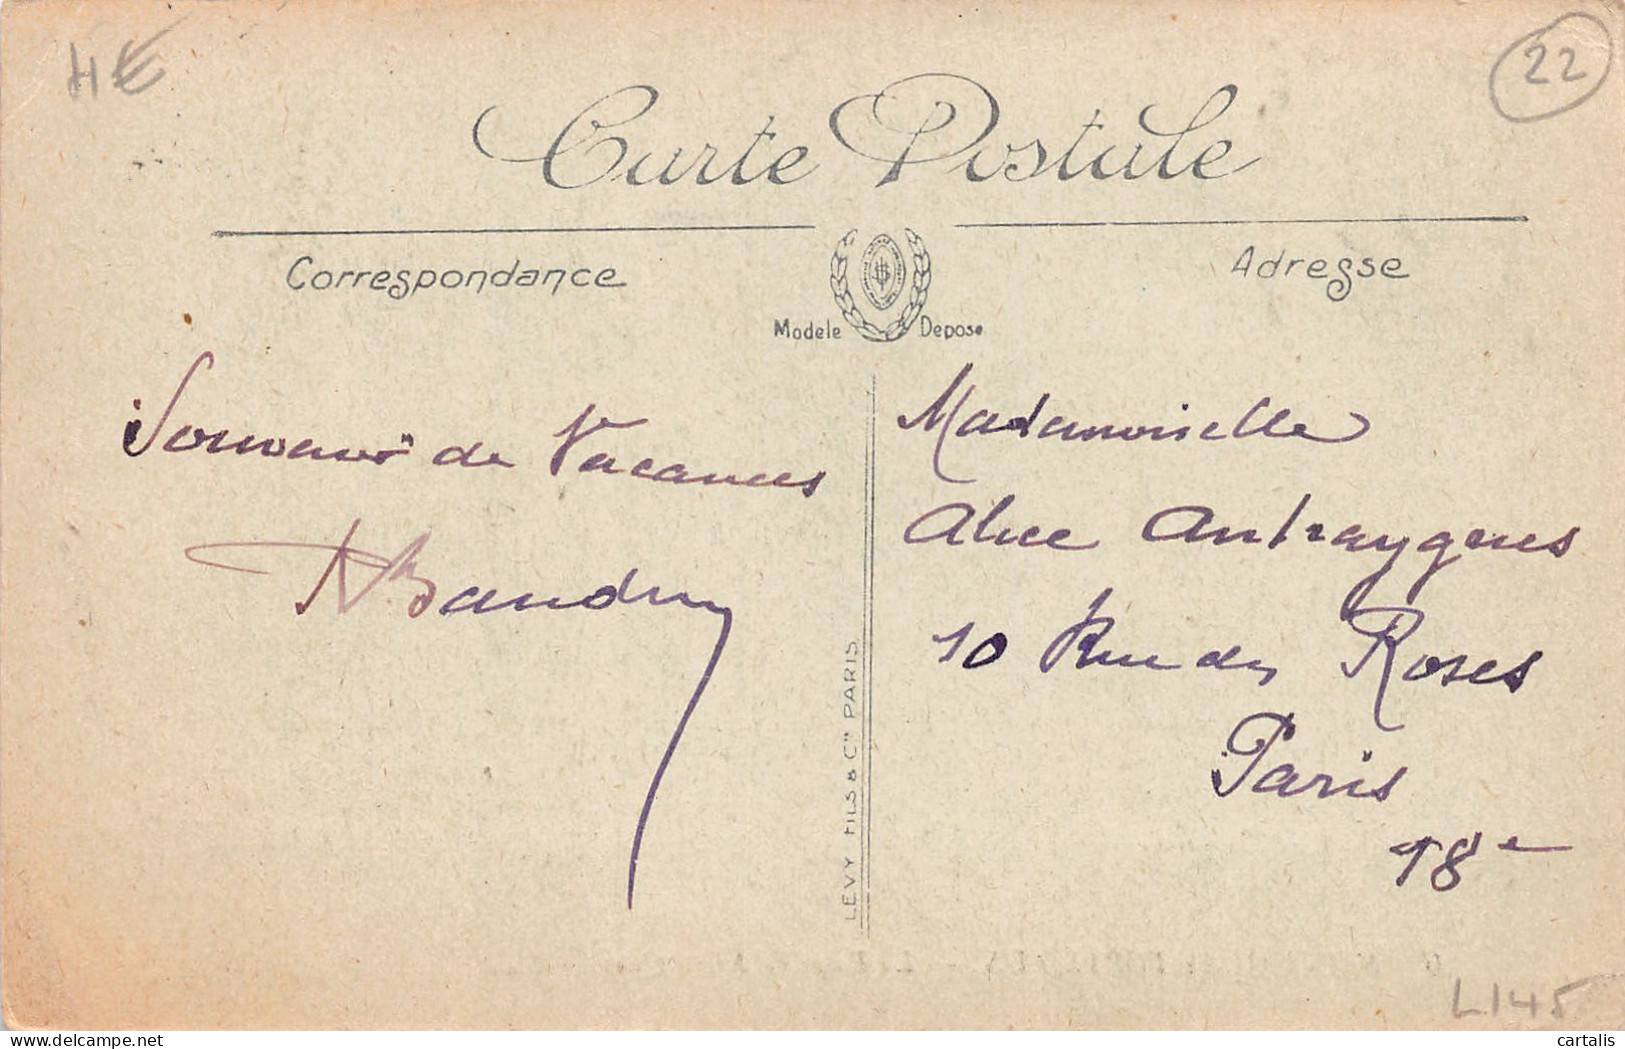 4€
22
Carte Postale
Correspondance
Adresse
Modele Deposé
Souvenir de Vacances
Baudry
LEVY FILS & Cie PARIS
Mademoiselle
Alice Antraygues
10 Rue des Roses
Paris
18e
L145
delcampe.net
cartalis